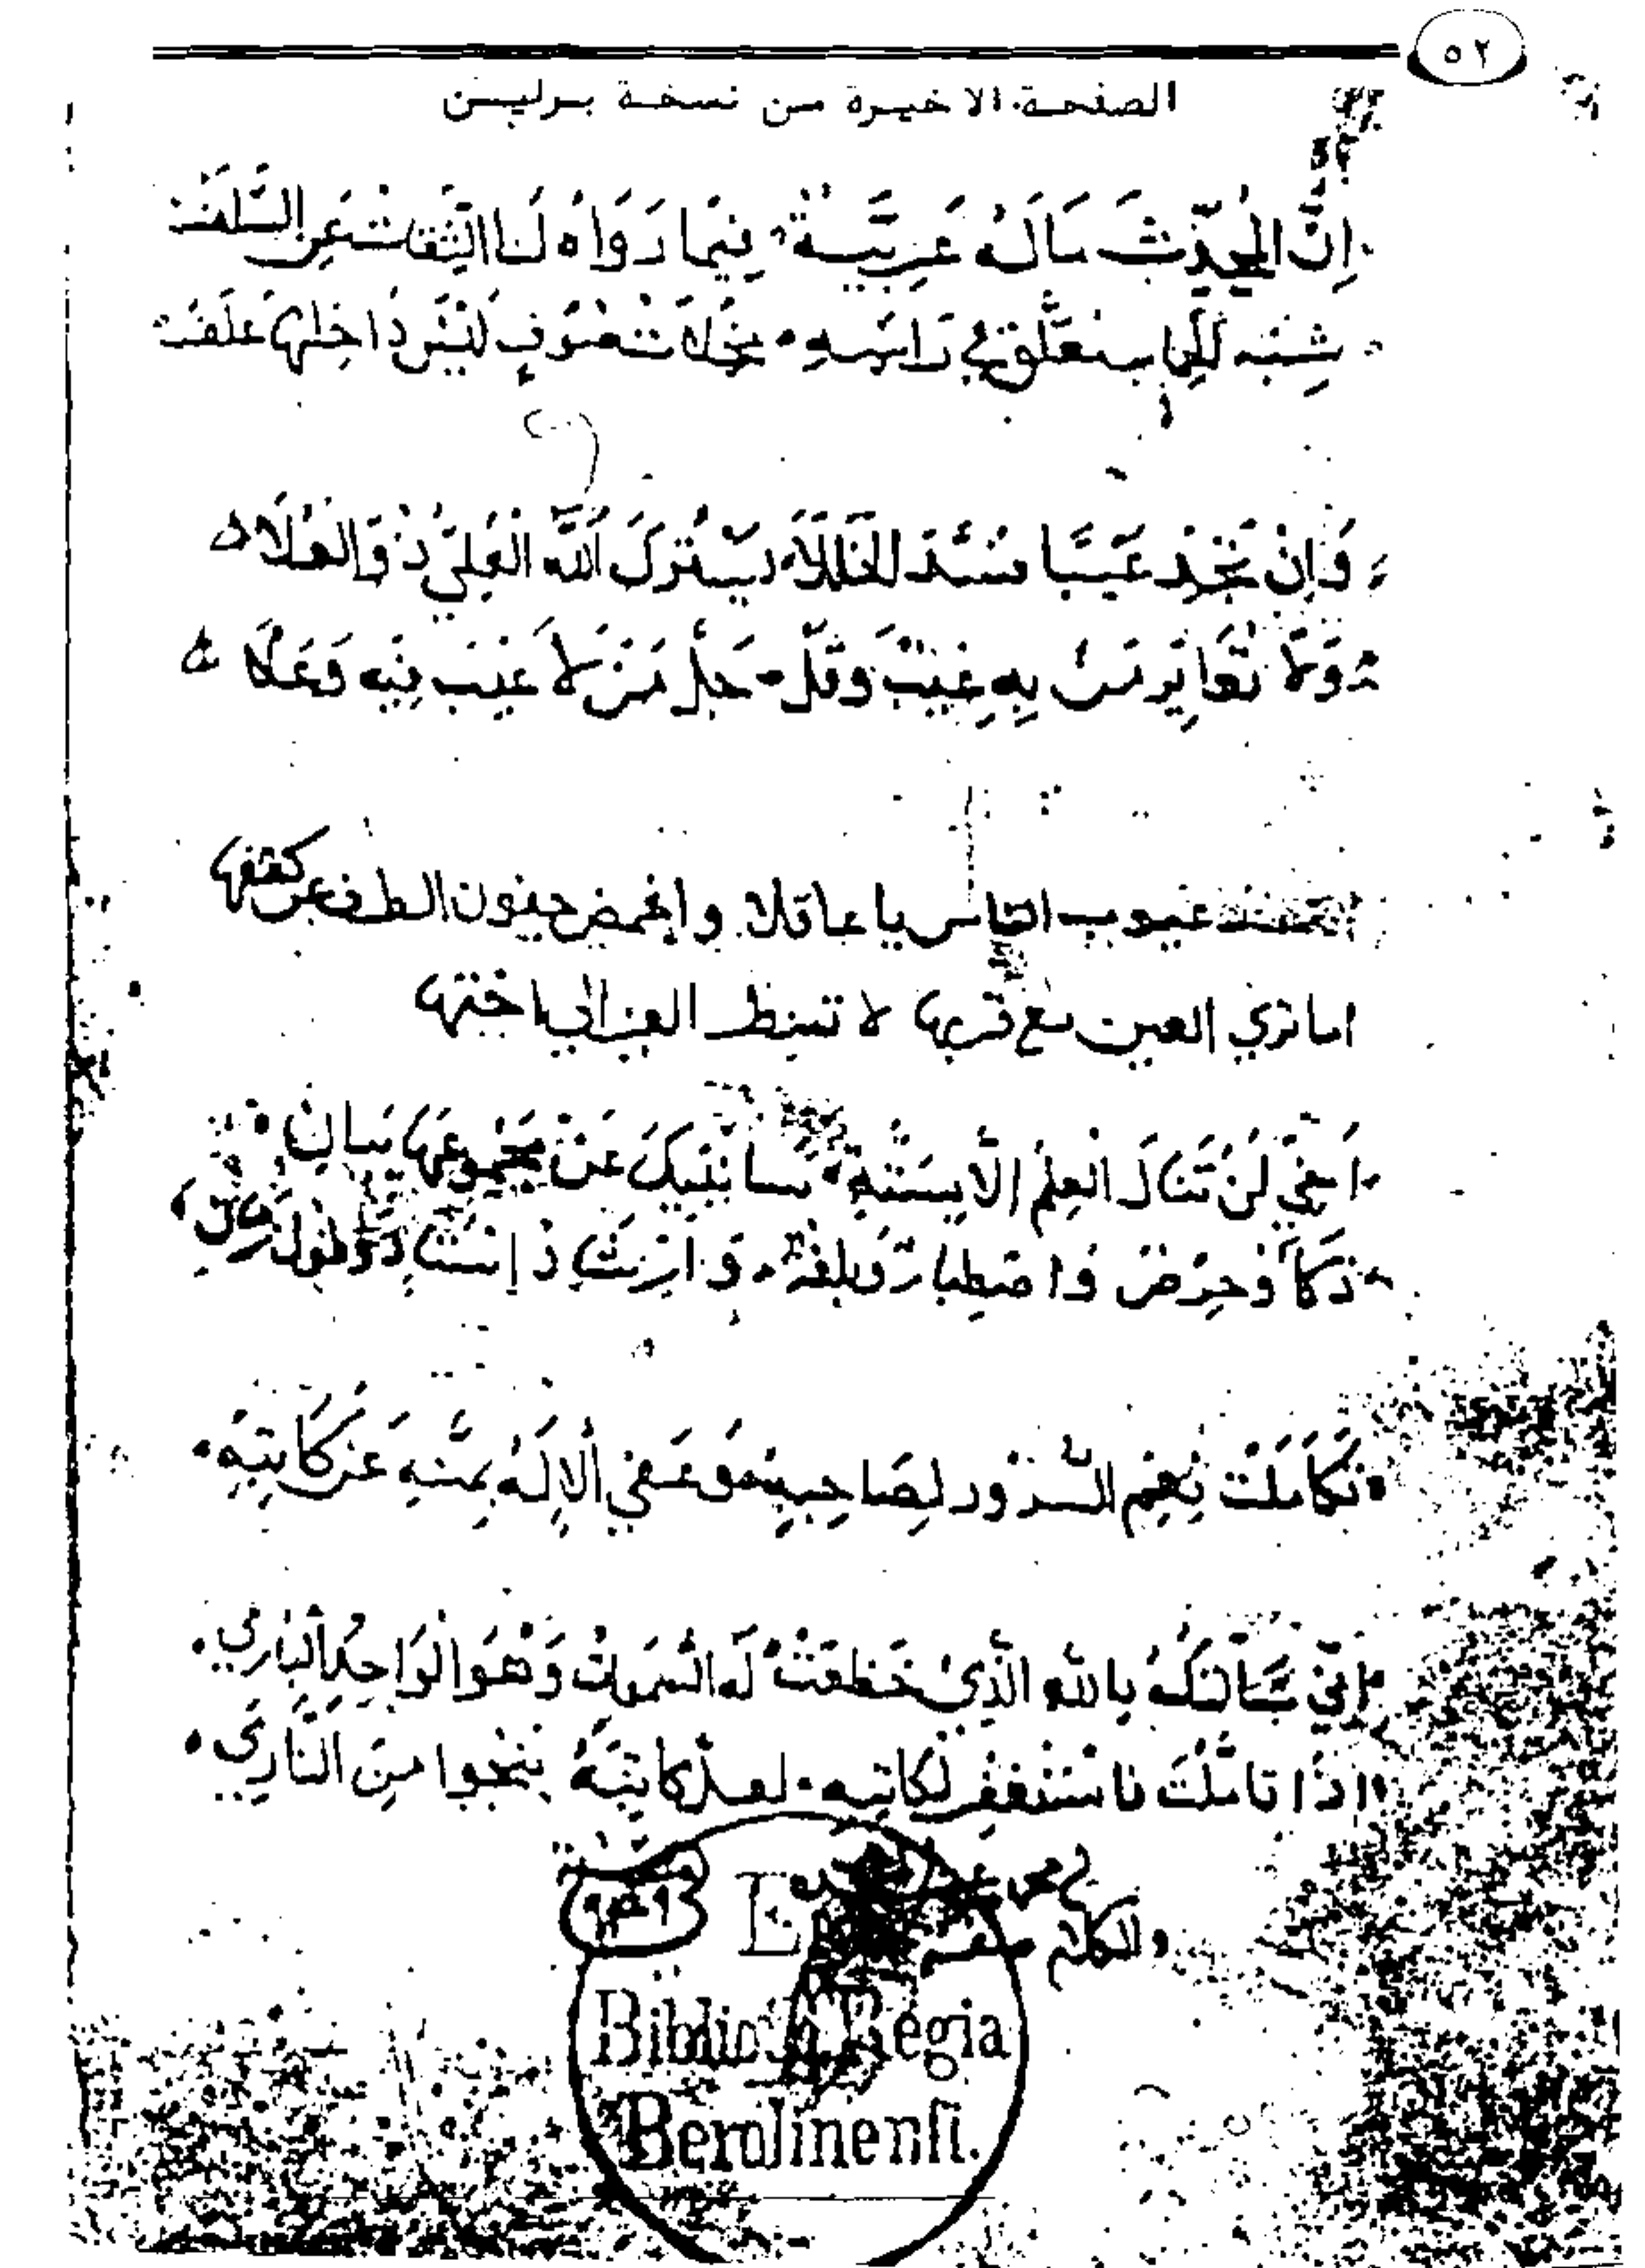 ٥٢
الصفحة الاخيرة من نسخة برلين
اِنَّ المُحَدِّثَ مَالَهُ عَرَبِيَّةٌ فِيمَا رَوَاهُ لَنَا الثِّقَاتُ عَنِ السَّلَفْ
شِبْهُ تَعَلَّق فِي رَاسِهِ مِخْلَاتُ صُوفٍ لَيْسَ دَاخِلَهَا عَلَفْ
وَاِنْ تَجِدْ عَيْبًا فَسُدَّ الخَلَلَا يَسْتُرُكَ اللَّه العَلِيُّ ذُو العُلَا
وَلَا تُعَايِر مَنْ بِهِ عَيْبٌ وَقُلْ جَلَّ مَنْ لَا عَيْبَ فِيه وَعَلَا
عيوب الناس يا عاقلا واغمض جفون الطرف عن كشفها
اما تري العين مع قربها لا تنظر العين الي اختها
اَخِي لَنْ تَنَالَ العِلْمَ اِلَّا بِسِتَّةٍ سَانْبِيكَ عَنْ مَجْمُوعِهَا بِبَيانِ
ذَكَاً وَحِرْصٌ وَاصْطِبَارٌ وَبلغَةٌ وَارْشَادِ اسْتَادٍ وَطُولُ زَمَانِ
تَكَامَلَتْ نِعَم السُّرُور لِصَاحِبِهِ وَعَفَي الاِلَهُ بِمَنِّهِ عَنْ كَاتِبِهِ
اِنِّي سَأَلتُكَ بِالله الَّذِي خَظَعَتْ لَهُ السَّمَوات وَهُوَ الوَاحِدُ البَارِي
اِذَا تَامَّلْتَ فَاسْتَغْفِر لكَاتِبه لعل كَاتِبَهُ ينجوا مِنَ النَّارِي
والكلام
E
Biblioth Regia
Berolinensi.